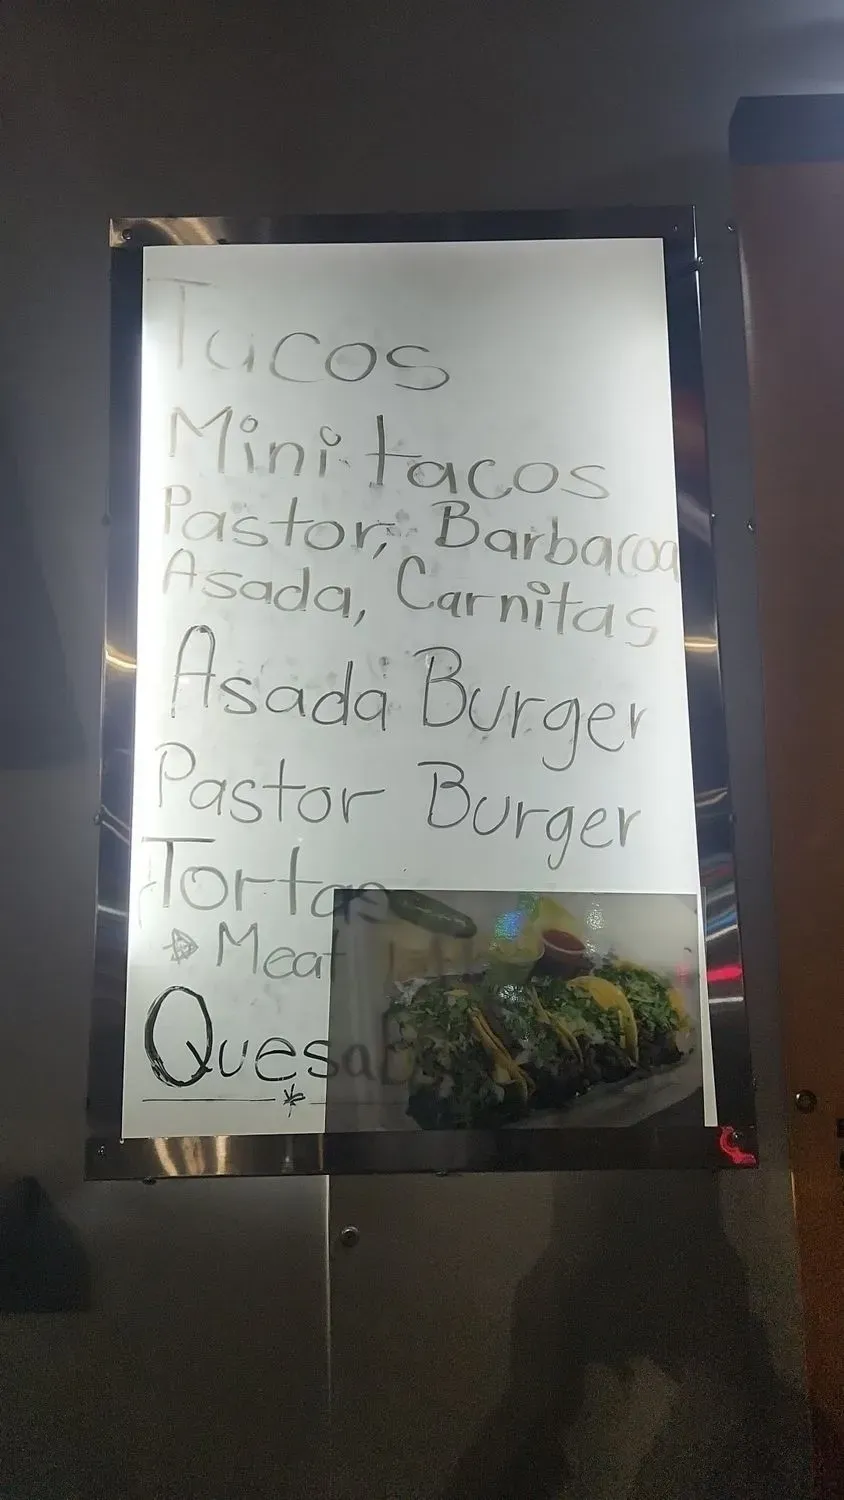 Tacos
Mini tacos
Pastor, Barbacoa
Asada, Carnitas
Asada Burger
Pastor Burger
Tortas
Meat